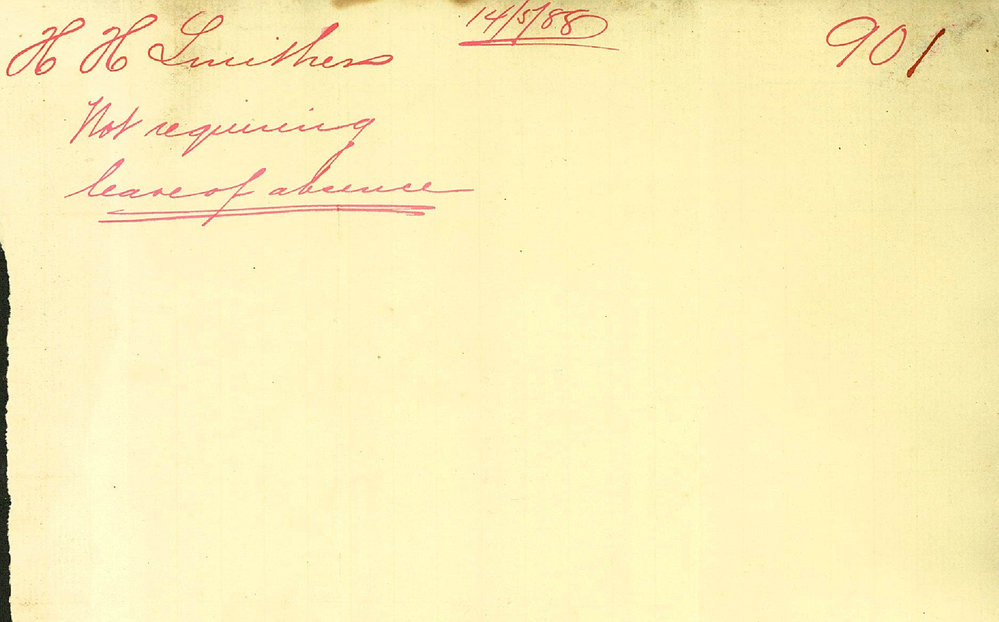 14/5/88
901
H H Smithers
Not requiring
leave of absence